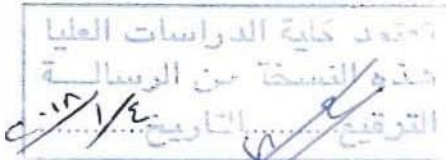 تعتمد كلية الدراسات العليا
هذه النسخة من الرسالـــة
التوقيع........التاريخ ٢٠١٨/١/٤